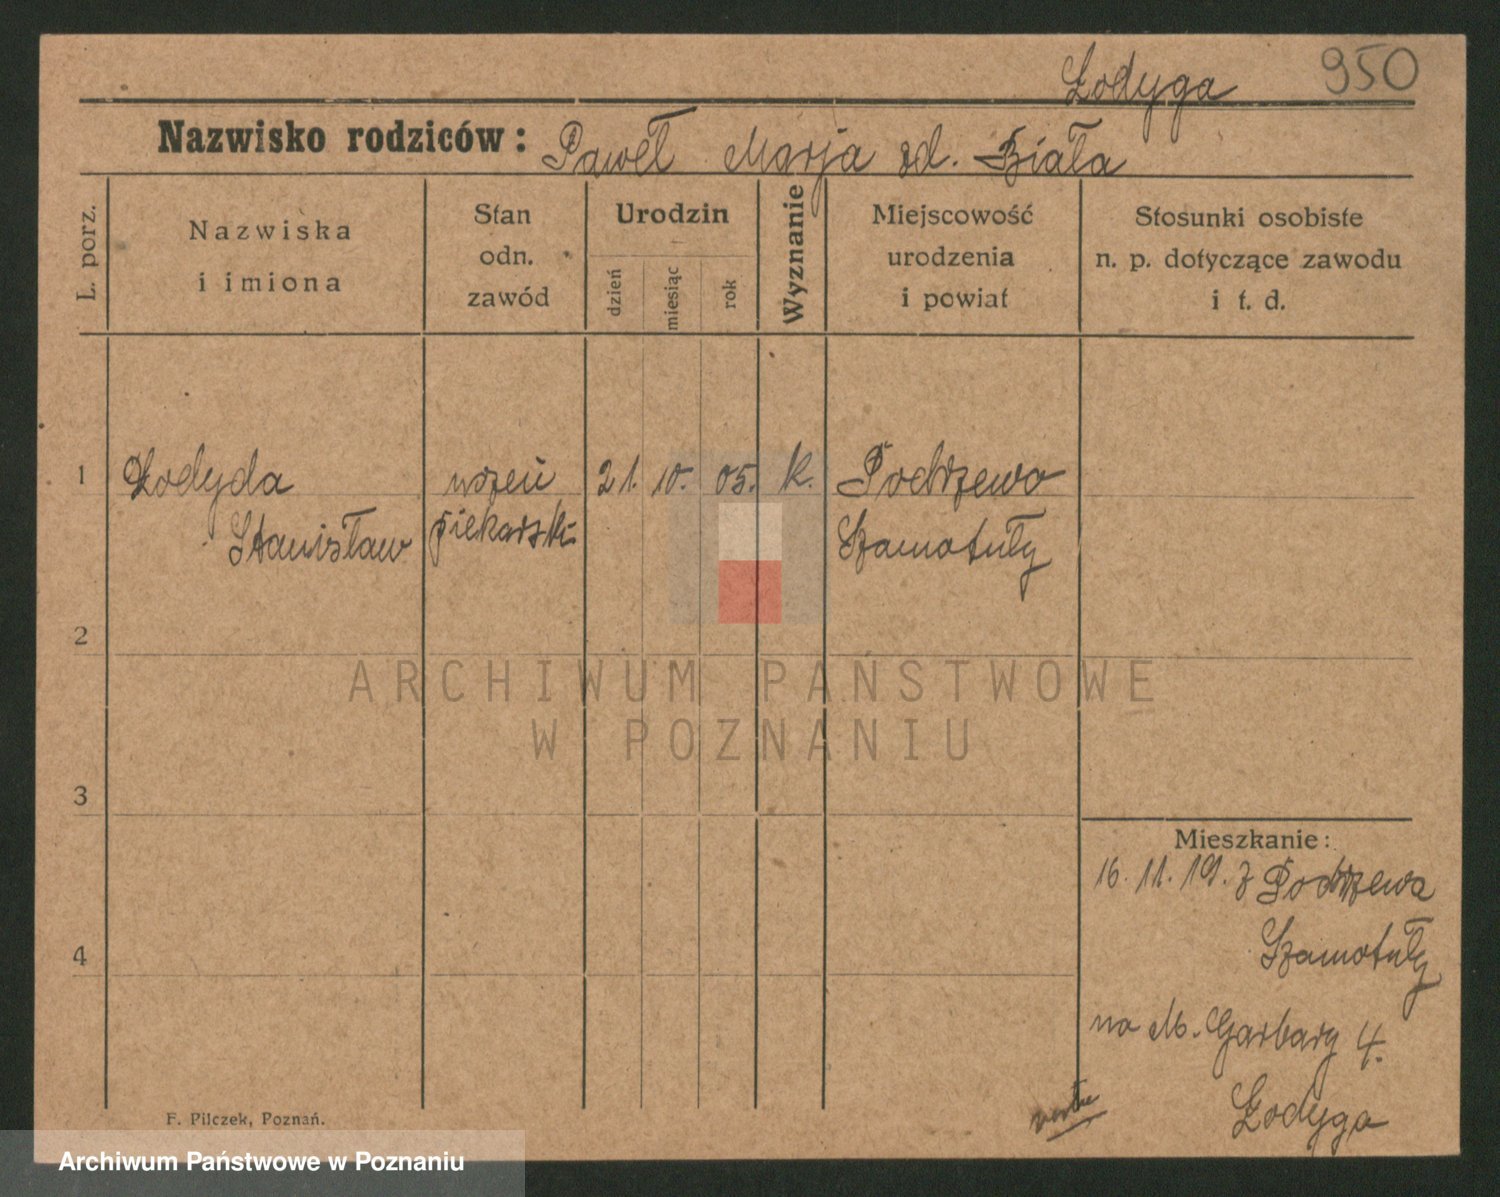 950
Łodyga
Nazwisko rodziców: Paweł Marja zd. Biała
L. porz.
Nazwiska
i imiona
Stan
odn.
zawód
Urodzin
dzień
miesiąc
rok
Wyznanie
Miejscowość
urodzenia
i powiat
Stosunki osobiste
n. p. dotyczące zawodu
i t. d.
1 Łodyda uczeń 21. 10. 05. k. Podrzewo
Stanisław piekarski Szamotuły
2
ARCHIWUM PAŃSTWOWE
W POZNANIU
3
Mieszkanie:
16. 11. 19. z Podrzewa
Szamotuły
4
na M. Garbary 4.
Łodyga
verte
F. Pilczek, Poznań.
Archiwum Państwowe w Poznaniu